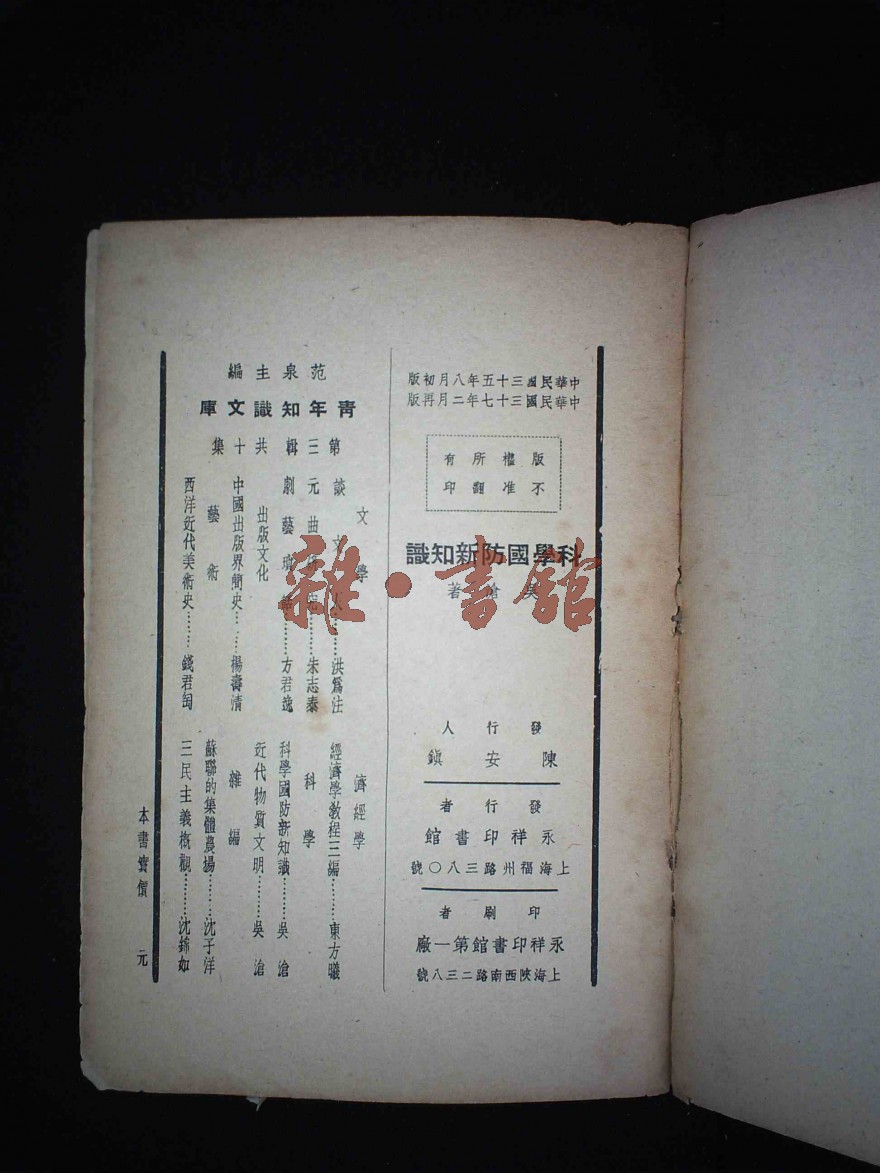 中華民國三十五年八月初版
中華民國三十七年二月再版
版權所有
不准翻印
科學國防新知識
吳滄著
發行人
陳安鎮
發行者
永祥印書館
上海福州路三八〇號
印刷者
永祥印書館第一廠
上海陝西南路二三八號
范泉主編
青年知識文庫
第三輯共十集
文學
談文人………洪為注
元曲研究………朱志泰
劇藝瑣話………方君逸
出版文化
中國出版界簡史……楊壽清
藝術
西洋近代美術史………錢君匋
濟經學
經濟學教程三編………東方曦
科學
科學國防新知識………吳滄
近代物質文明………吳滄
雜編
蘇聯的集體農場………沈子洋
三民主義概觀………沈錦如
本書實價 元
雜·書館